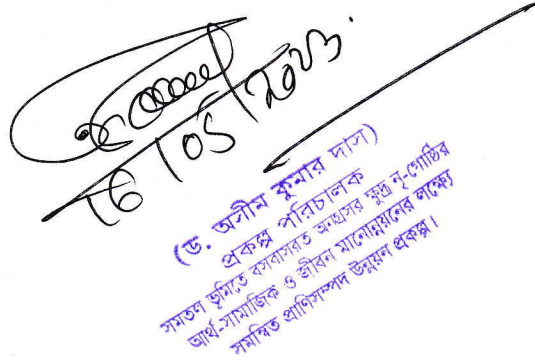 16/05/2023
(ড. অসীম কুমার দাস)
প্রকল্প পরিচালক
সমতল ভূমিতে বসবাসরত অনগ্রসর ক্ষুদ্র নৃ-গোষ্ঠির
আর্থ-সামাজিক ও জীবন মানোন্নয়নের লক্ষ্যে
সমন্বিত প্রাণিসম্পদ উন্নয়ন প্রকল্প।